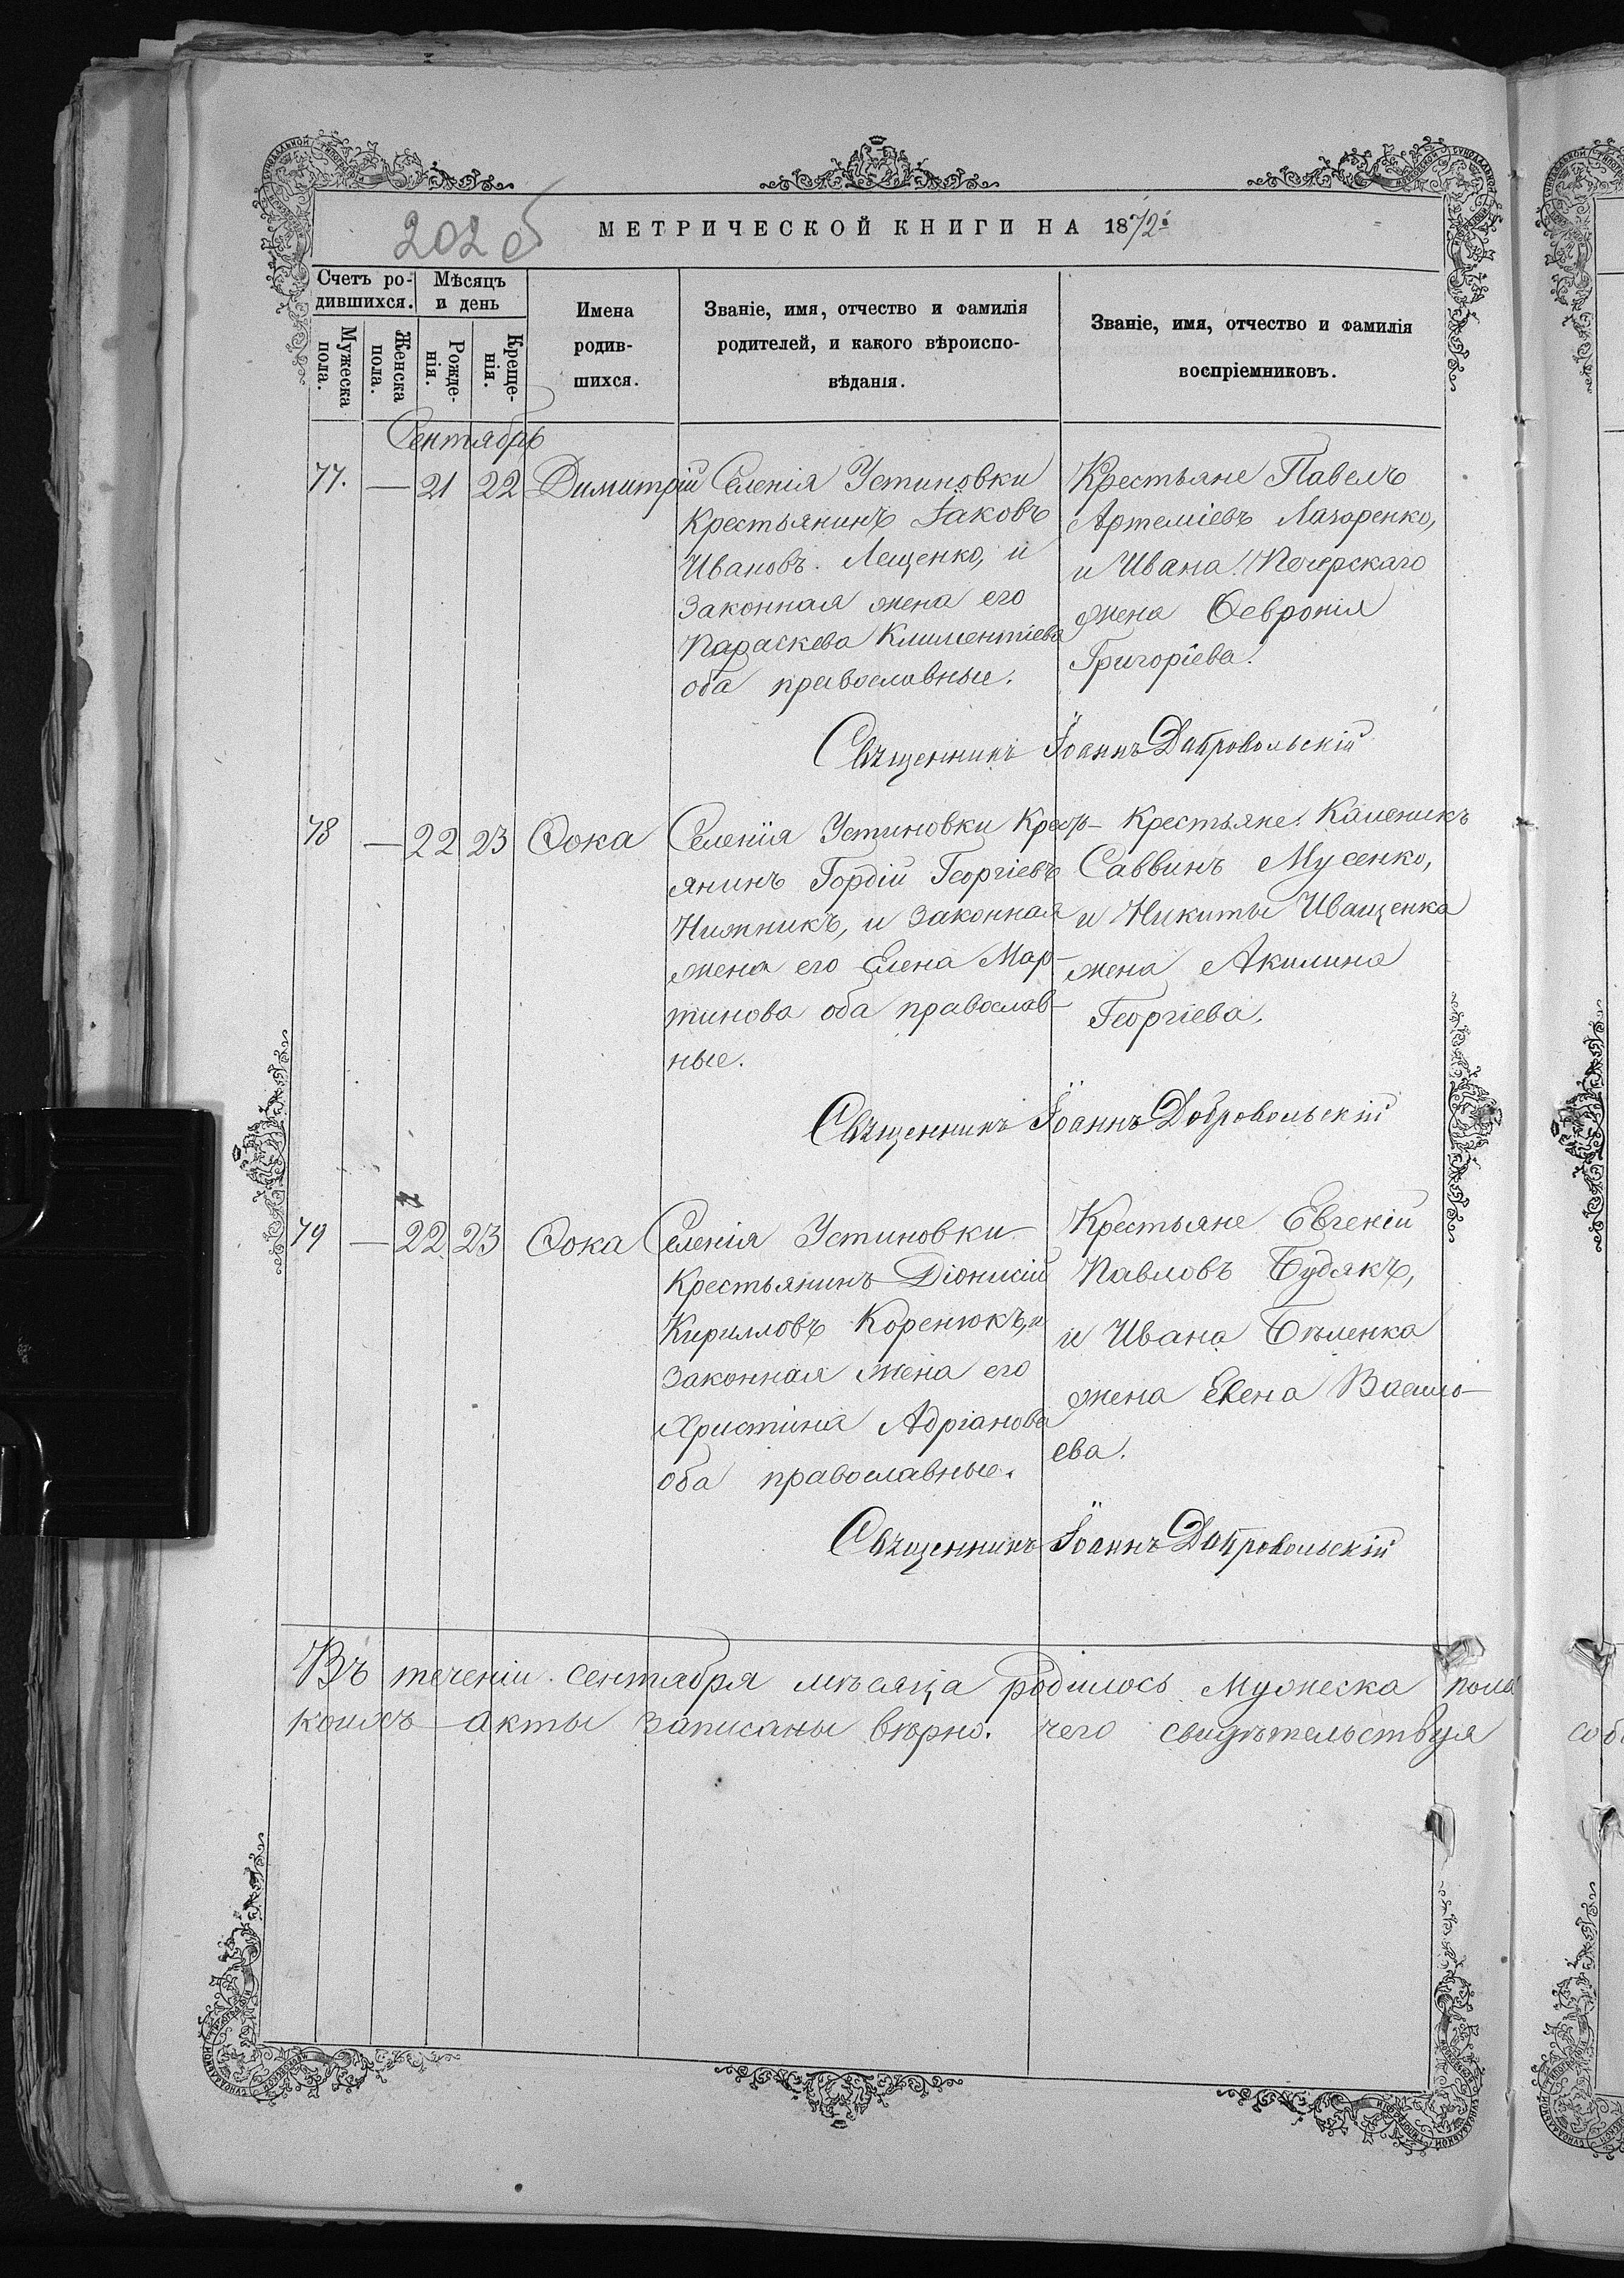 202 об
МЕТРИЧЕСКОЙ КНИГИ НА 1872й
Счетъ ро-
дившихся.
Мѣсяцъ
и день
Мужеска
пола.
Женска
пола.
Рожде-
нія.
Креще-
нія.
Имена
родив-
шихся.
Званіе, имя, отчество и фамилія
родителей, и какого вѣроиспо-
вѣданія.
Званіе, имя, отчество и фамилія
воспріемниковъ.
Сентябрь
77. — 21 22 Димитрій
Селенія Устиновки
крестьянинъ Іаковъ
Ивановъ Лещенко, и
законная жена его
Параскева Климентіева
оба православные.
Крестьяне Павелъ
Артеміевъ Лазоренко,
и Ивана Печерскаго
жена Ѳевронія
Григоріева.
Священникъ Іоаннъ Добровольскій
78 — 22 23 Ѳока
Селенія Устиновки Крест-
янинъ Гордій Георгіевъ
Нижникъ, и законная
жена его Елена Мар-
тинова оба православ-
ные.
Крестьяне Каленикъ
Саввинъ Мусенко,
и Никиты Иващенка
жена Акилина
Георгіева.
Священникъ Іоаннъ Добровольскій
79 — 22 23 Ѳока
Селенія Устиновки
Крестьянинъ Діонисій
Кирилловъ Коренюкъ, и
законная жена его
Христина Адріанова
оба православные.
Крестьяне Евгеній
Павловъ Будякъ,
и Ивана Бѣленка
жена Елена Васили-
ева.
Священникъ Іоаннъ Добровольскій
Въ теченіи сентября мѣсяца родилось мужеска пола
коихъ акты записаны вѣрно. чего свидѣтельствуя